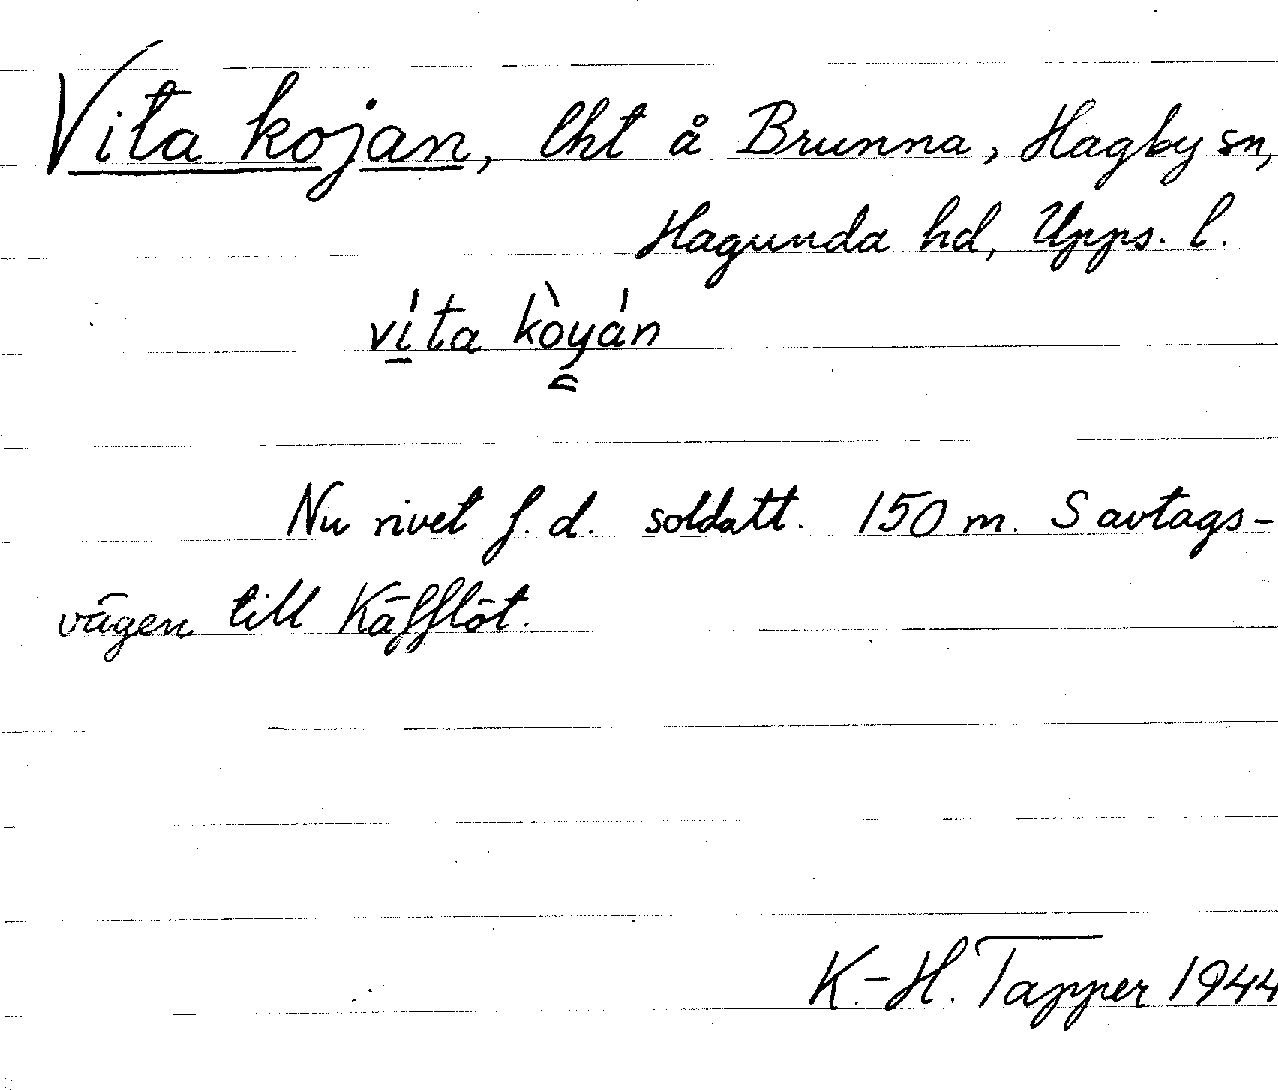 Vita kojan, lht å Brunna, Hagby sn,
Hagunda hd, Upps. l.
víta kòyán
Nu rivet f. d. soldatt. 150 m. S avtags-
vägen till Käfflöt.
K.-H. Tapper 1944